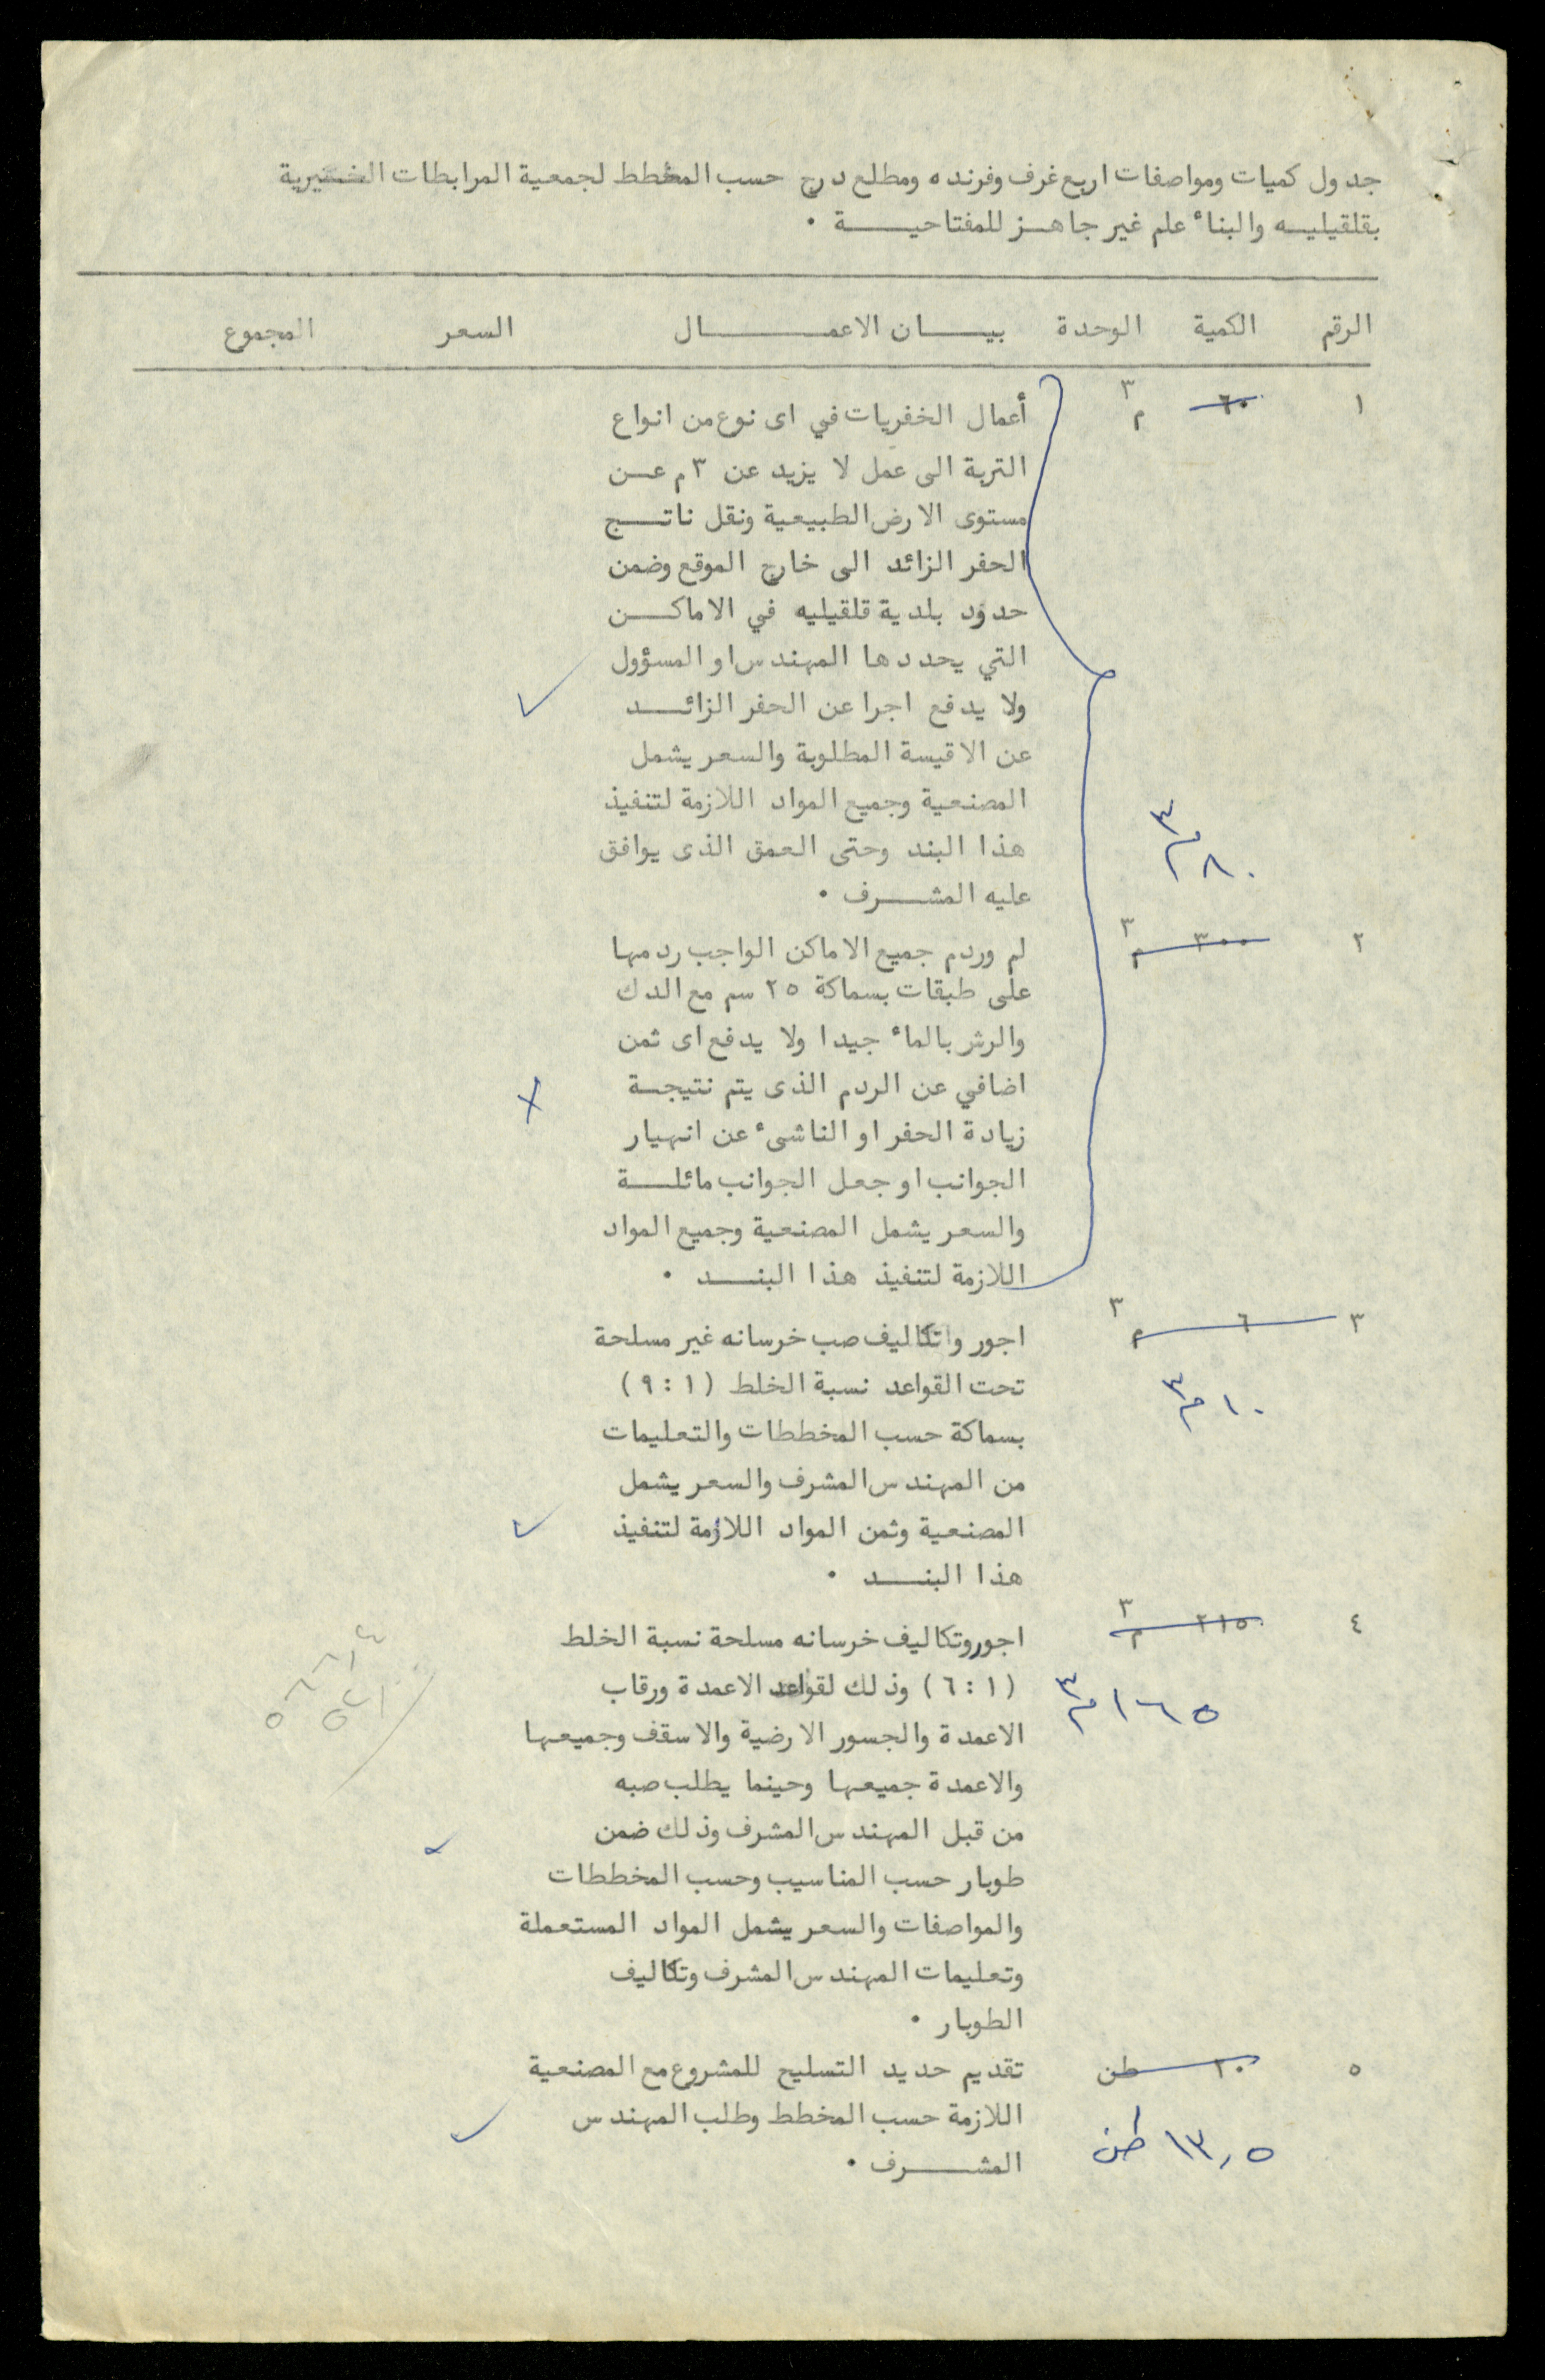 جدول كميات ومواصفات اربع غرف وفرنده ومطلع درج حسب المخطط لجمعية المرابطات الخيرية
بقلقيليه والبناء علم غير جاهز للمفتاحية .
الرقم الكمية الوحدة بيان الاعمال السعر المجموع
١ ٦٠ م٣ أعمال الخفريات في اى نوع من انواع
التربة الى عمل لا يزيد عن ٣م عن
مستوى الارض الطبيعية ونقل ناتج
الحفر الزائد الى خارج الموقع وضمن
حدود بلدية قلقيليه في الاماكن
التي يحددها المهندس او المسؤول
ولا يدفع اجرا عن الحفر الزائد
عن الاقيسة المطلوبة والسعر يشمل
المصنعية وجميع المواد اللازمة لتنفيذ
هذا البند وحتى العمق الذى يوافق
٨٠ م٣
عليه المشرف .
٢ ٣٠٠ م٣ لم وردم جميع الاماكن الواجب ردمها
على طبقات بسماكة ٢٥ سم مع الدك
والرش بالماء جيدا ولا يدفع اى ثمن
اضافي عن الردم الذى يتم نتيجة
زيادة الحفر او الناشىء عن انهيار
الجوانب او جعل الجوانب مائلة
والسعر يشمل المصنعية وجميع المواد
اللازمة لتنفيذ هذا البند .
٣ ٦ م٣ اجور واتكاليف صب خرسانه غير مسلحة
تحت القواعد نسبة الخلط (١ : ٩)
١٠ م٣
بسماكة حسب المخططات والتعليمات
من المهندس المشرف والسعر يشمل
المصنعية وثمن المواد اللازمة لتنفيذ
هذا البند .
٤ ٢١٥ م٣ اجور وتكاليف خرسانه مسلحة نسبة الخلط
(١ : ٦) وذلك لقواعد الاعمدة ورقاب
١٦٥ م٣
الاعمدة والجسور الارضية والاسقف وجميعها
والاعمدة جميعها وحينما يطلب صبه
من قبل المهندس المشرف وذلك ضمن
طوبار حسب المناسيب وحسب المخططات
والمواصفات والسعر يشمل المواد المستعملة
وتعليمات المهندس المشرف وتكاليف
الطوبار .
٥ ٢٠ طن تقديم حديد التسليح للمشروع مع المصنعية
اللازمة حسب المخطط وطلب المهندس
١٣,٥ طن
المشرف .